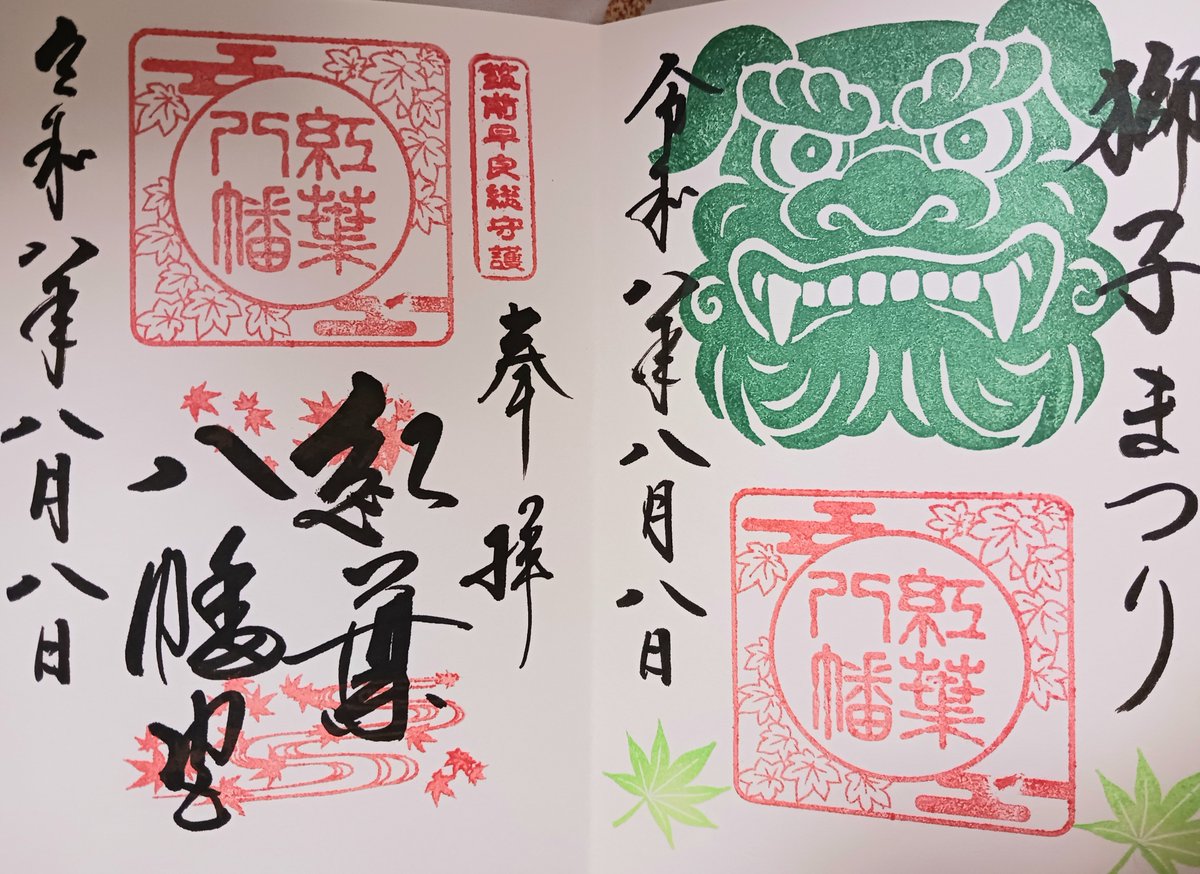 獅子まつり
紅葉
八幡
令和八年八月八日
筑前早良総守護
奉拝
紅葉
八幡
紅葉
八幡宮
令和八年八月八日